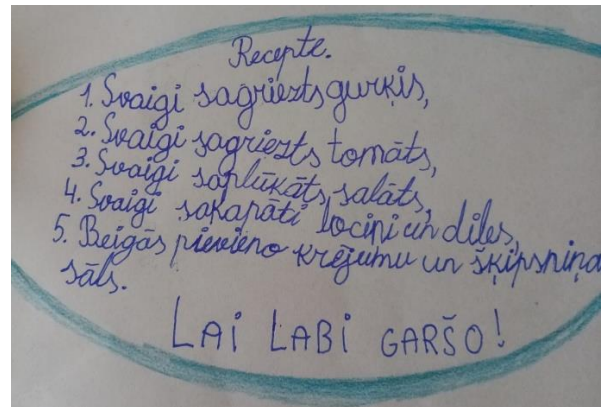 Recepte.
1. Svaigi sagriezts gurķis,
2. Svaigi sagriezts tomāts,
3. Svaigi saplūkāts salāts,
4. Svaigi sakapāti lociņi un dilles,
5. Beigās pievieno krējumu un šķipsniņa
sāls.
LAI LABI GARŠO!